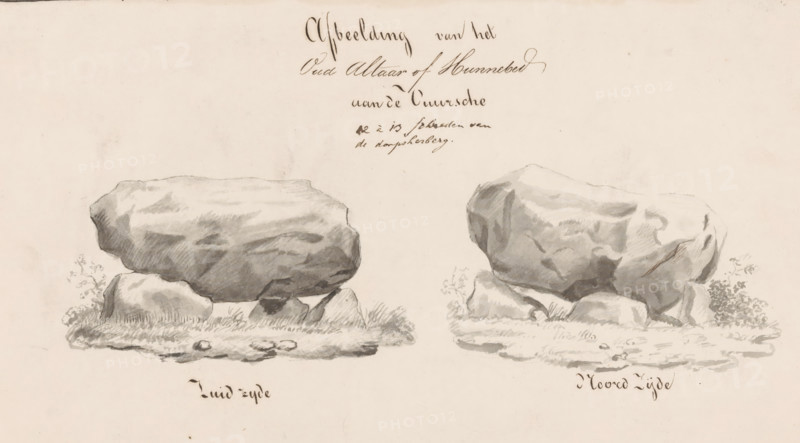 Afbeelding van het
Oud Altaar of Hunnebed
aan de Vuursche
12 à 13 schreden van
de
Zuid zyde
Noord Zijde